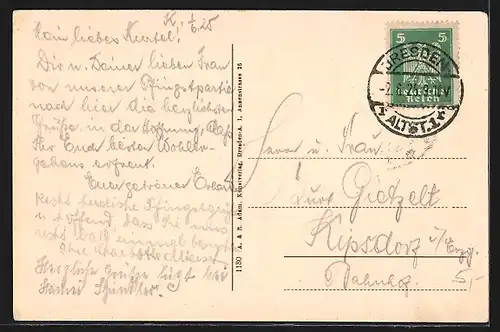 K. 1/6.25
Mein liebes Kurtel!
Dir u. Deiner lieben Frau
von unserer Pfingstpartie
nach hier die herzlichsten
Grüße, in der Hoffnung, daß
Ihr Euch besten Wohler-
gehens erfreut.
Euer getreuer
Recht herzliche Pfingstgrüße
u. hoffend, dass Sie uns
recht bald einmal
Ihre
Herzliche Grüße fügt bei
1130 A. & R. Adam, Kunstverlag, Dresden-A. 1, Annenstrasse 16
5 5
Deutsches
Reich
DRESDEN
ALTST. 1
Herrn u. Frau
Gietzelt
Kipsdorf i/Erzg.
Bahnhof
5,-